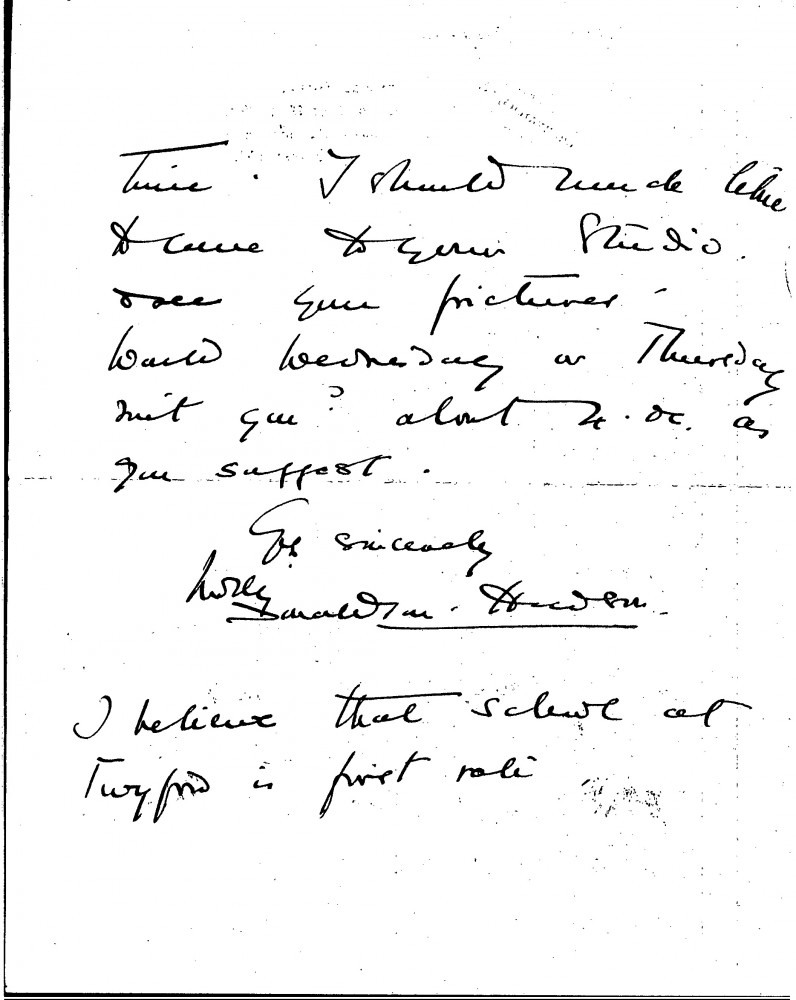 time. I should much like
to come to your Studio.
to see your pictures -
Would Wednesday or Thursday
suit you? about 4. oc. as
you suggest.
Yrs sincerely
Donaldson-Hudson.
I believe that school at
Twyford is first rate